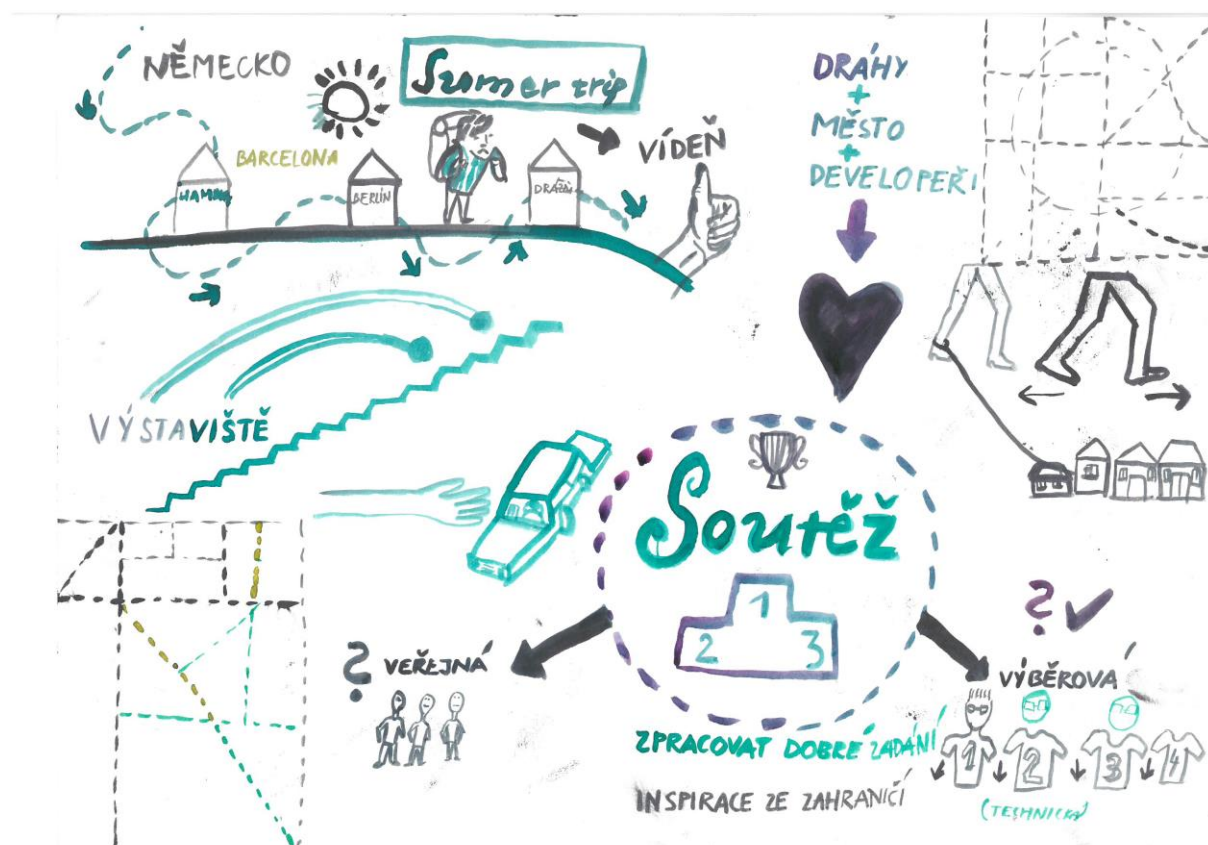 NĚMECKO
Sumer trip
BARCELONA
BERLÍN
VÍDEŇ
DRÁHY
+
MĚSTO
+
DEVELOPEŘI
VÝSTAVIŠTĚ
Soutěž
1
2 3
? VEŘEJNÁ
? ✓
VÝBĚROVÁ
1 2 3 4
(TECHNICKÁ)
ZPRACOVAT DOBRÉ ZADÁNÍ
INSPIRACE ZE ZAHRANIČÍ